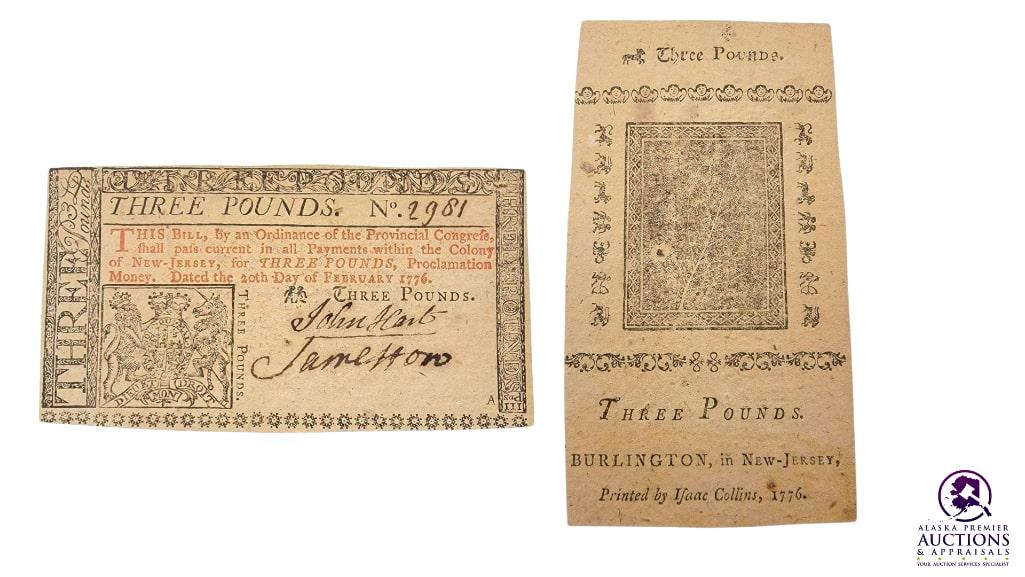 THREE POUNDS
THREE POUNDS. Nº. 2981
THIS BILL, by an Ordinance of the Provincial Congreſs,
ſhall paſs current in all Payments within the Colony
of NEW-JERSEY, for THREE POUNDS, Proclamation
Money. Dated the 20th Day of FEBRUARY 1776.
THREE POUNDS.
John Hart
THREE POUNDS.
DIEU ET MON DROIT
A
III
THREE
Three POUNDS.
THREE POUNDS.
BURLINGTON, in NEW-JERSEY,
Printed by Iſaac Collins, 1776.
ALASKA PREMIER
AUCTIONS
& APPRAISALS
YOUR AUCTION SERVICES SPECIALIST